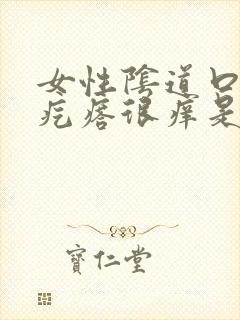 女性陰道口
疙瘩很痒是
寶仁堂